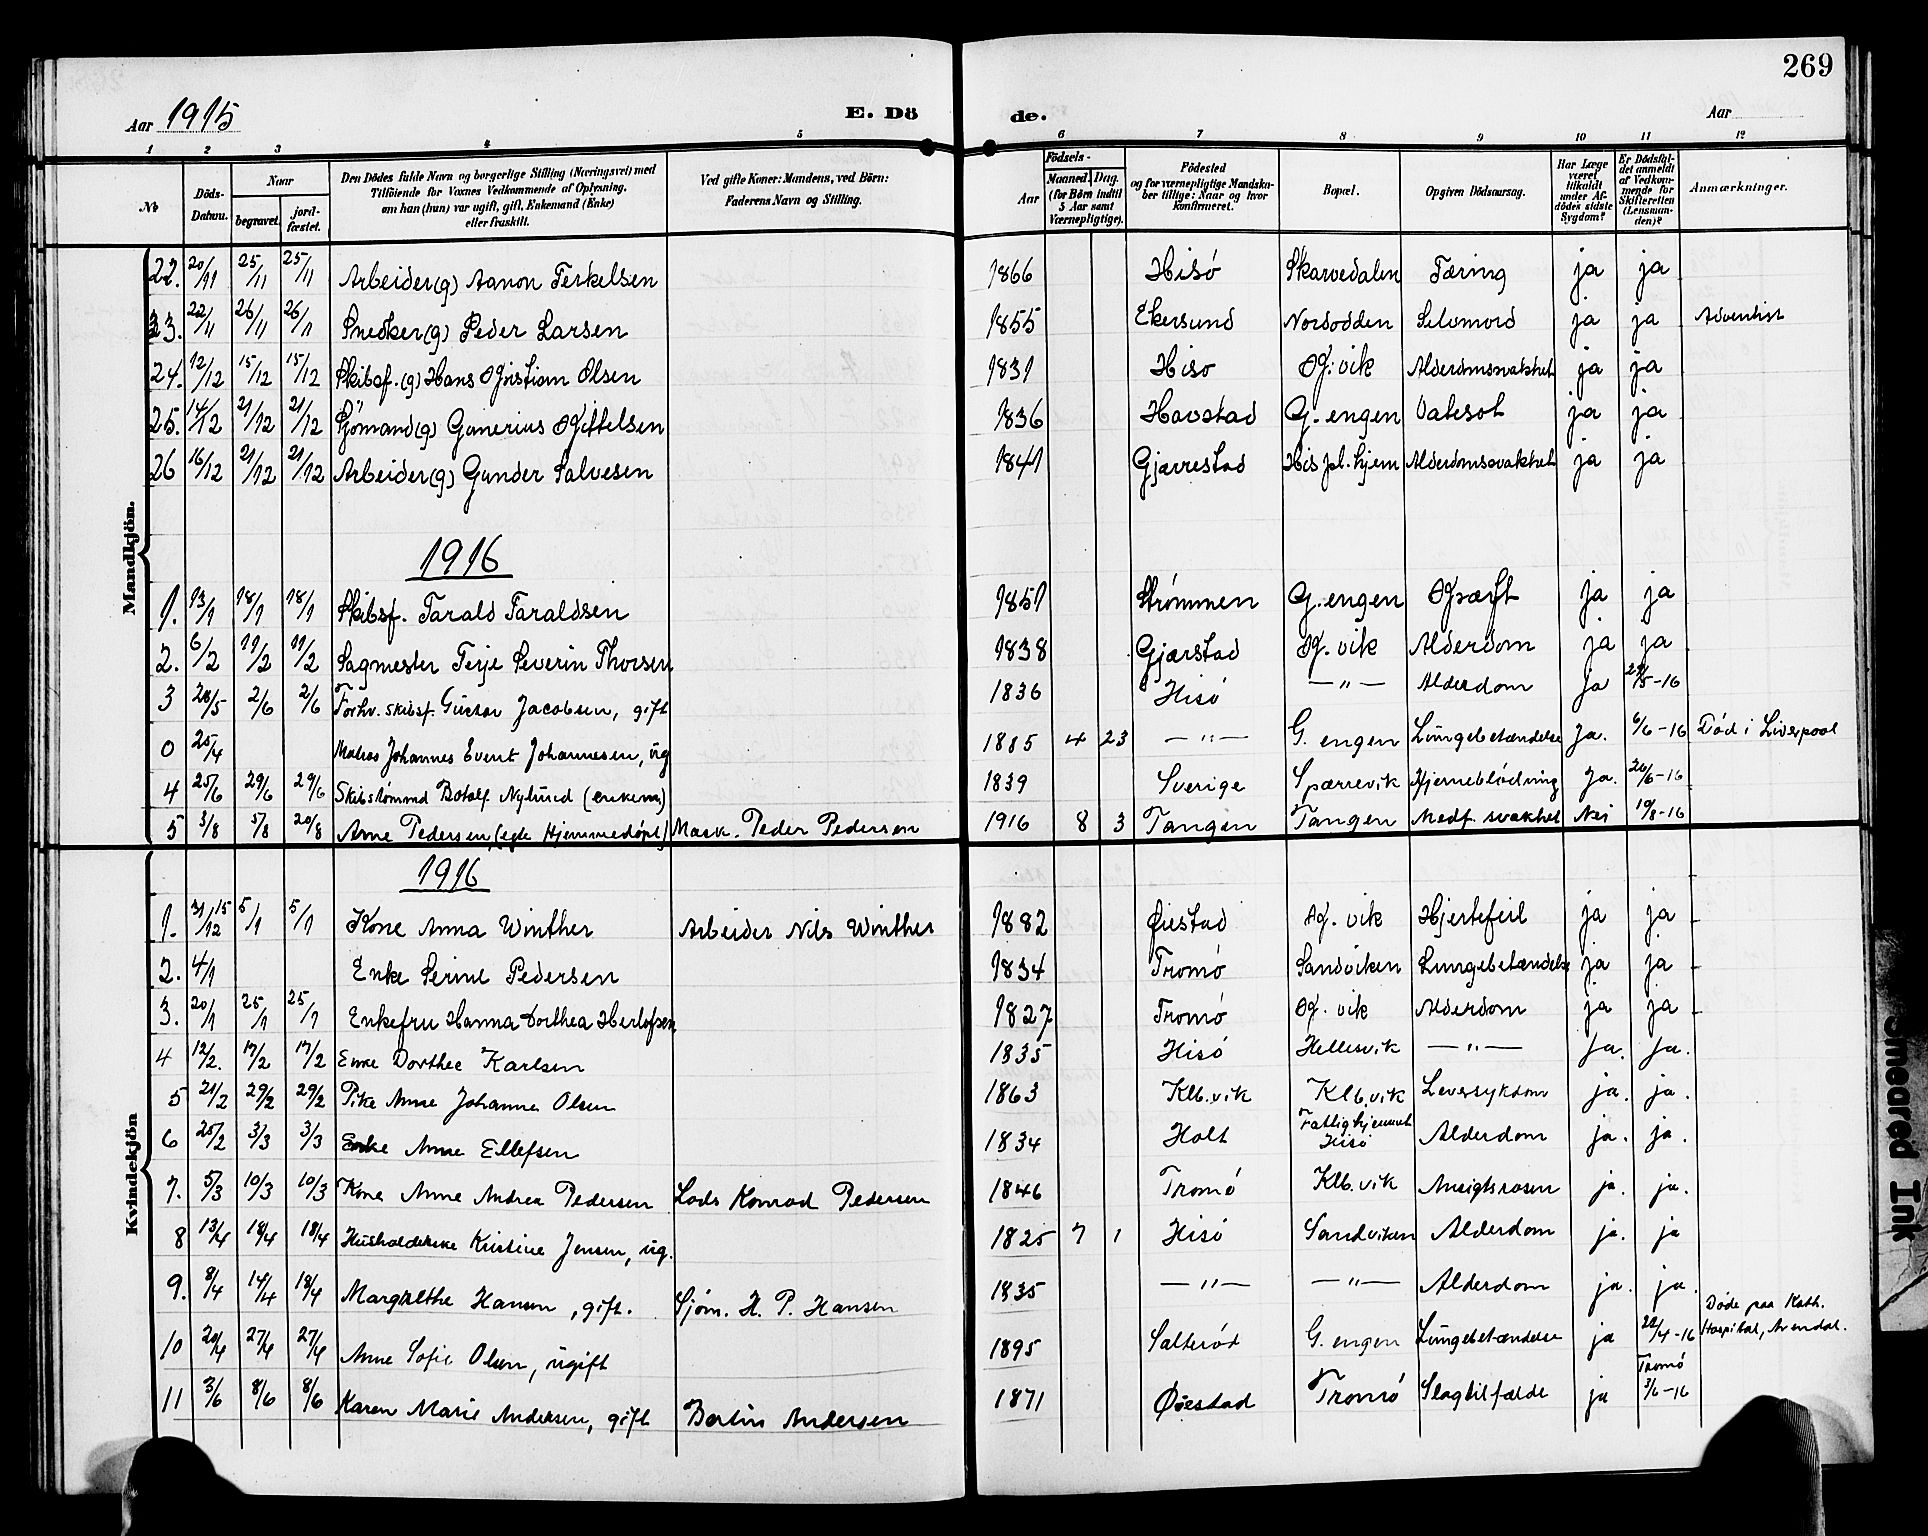 269
Aar 1915 E. Dö de. Aar
1 2 3 4 5 6 7 8 9 10 11 12
No
Döds-Datum.
Naar begravet. jordfæstet.
Den Dödes fulde Navn og borgerlige Stilling (Næringsvei) med Tilföiende for Voxnes Vedkommende af Oplysning, om han (hun) var ugift, gift, Enkemand (Enke) eller fraskilt.
Ved gifte Koner: Mandens, ved Börn: Faderens Navn og Stilling.
Födsels- Aar Maaned. Dag. (for Börn indtil 5 Aar samt Værnepligtige).
Födested og for værnepligtige Mandskaber tillige: Naar og hvor konfirmeret.
Bopæl.
Opgiven Dödsaarsag.
Har Læge været tilkaldt under Afdödes sidste Sygdom?
Er Dödsfaldet anmeldt af Vedkommende for Skifteretten (Lensmanden)?
Anmærkninger.
Mandkjön.
22. 20/11 25/11 25/11 Arbeider (g) Aanon Terkelsen 1866 Hisø Skarvedalen Tæring ja ja
23. 22/11 26/11 26/11 Snedker (g) Peder Larsen 1855 Ekersund Nordodden Selvmord ja ja Adventist
24. 12/12 15/12 15/12 Skibsf. (g) Hans Kristian Olsen 1831 Hisø K. vik Alderdomssvakhet ja ja
25. 14/12 21/12 21/12 Sjömand (g) Gunerius Kittelsen 1836 Havstad G. engen Vatesot ja ja
26 16/12 21/12 21/12 Arbeider (g) Gunder Salvesen 1841 Gjærrestad His pl. hjem Alderdomssvakhet ja ja
1916
1. 13/1 18/1 18/1 Skibsf. Tarald Taraldsen 1851 Strømmen G. engen Kræft ja ja
2. 6/2 11/2 11/2 Sagmester Terje Severin Thorsen 1838 Gjærstad K. vik Alderdom ja ja
3 28/5 2/6 2/6 Forhv. skibsf. Gustav Jacobsen, gift 1836 Hisø — " — Alderdom Ja 29/5-16
0 25/4 Matros Johannes Event Johannesen, ug 1885 4 23 — " — G. engen Lungebetændelse Ja. 6/6-16 Död i Liverpool
4 25/6 29/6 29/6 Skibstømmd Botolf Nylund (enkem) 1839 Sverige Spærrevik Hjerneblödning Ja. 26/6-16
5 3/8 5/8 20/8 Arne Pedersen, (egte Hjemmedøpt) Mask. Peder Pedersen 1916 8 3 Tangen Tangen Medf. svakhet Nei 19/8-16
Kvindekjön
1916
1. 31/12 15 5/1 5/1 Kone Anna Winther Arbeider Nils Winther 1882 Øiestad K. vik Hjertefeil ja ja
2. 4/1 Enke Serine Pedersen 1834 Tromø Sandviken Lungebetændelse ja ja
3. 20/1 25/1 25/1 Enkefru Hanna Dorthea Herlofsen 1827 Tromø K. vik Alderdom ja ja
4 12/2. 17/2 17/2 Enke Dorthee Karlsen 1835 Hisø Hellesvik — " — Ja. Ja.
5 21/2 29/2 29/2 Pike Anne Johanne Olsen 1863 Klb. vik Klb. vik Leversykdom ja. ja.
6 25/2 3/3 3/3 Enke Anne Ellefsen 1834 Holt Fattighjemmet Hisø Alderdom ja. ja.
7. 5/3 10/3 10/3 Kone Anne Andrea Pedersen Lods Konrad Pedersen 1846 Tromø Klb. vik Ansigtsrosen ja. ja.
8 13/4 18/4 18/4 Husholderske Kristine Jensen, ug. 1825 7 1 Hisø Sandviken Alderdom ja. ja
9. 8/4 14/4 18/4 Margrethe Hansen, gift. Sjøm. H. P. Hansen 1835 — " — — " — Alderdom ja. ja.
10 20/4 27/4 27/4 Anne Sofie Olsen, ugift 1895 Salterød G. engen Lungebetændelse ja 22/4-16 Døde paa Kath. Hospital, Arendal.
11 3/6 8/6 8/6 Karen Marie Andersen, gift Bertin Andersen 1871 Øiestad Tromø Slagtilfælde ja Tromø 3/6-16
Smeared Ink